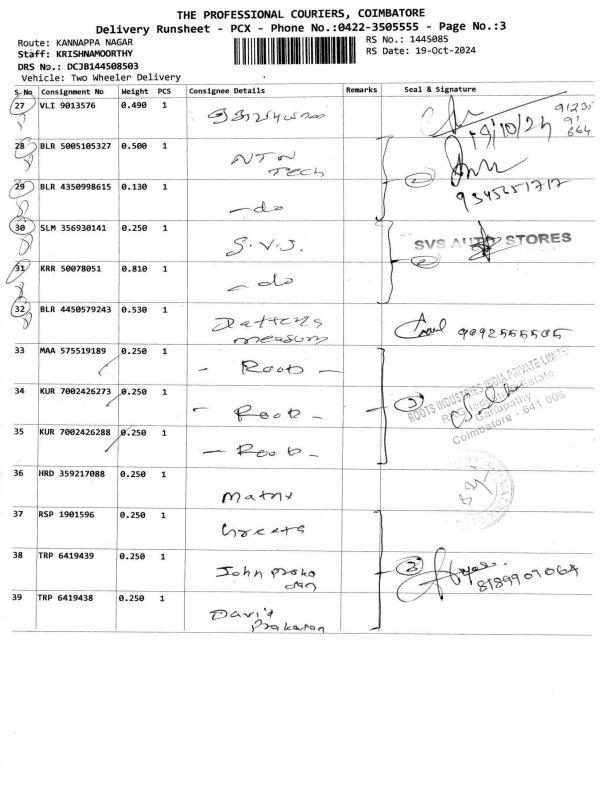 THE PROFESSIONAL COURIERS, COIMBATORE
Delivery Runsheet - PCX - Phone No.:0422-3505555 - Page No.:3
Route: KANNAPPA NAGAR
RS No.: 1445085
Staff: KRISHNAMOORTHY
RS Date: 19-Oct-2024
DRS No.: DCJB144508503
Vehicle: Two Wheeler Delivery
S No Consignment No Weight PCS Consignee Details Remarks Seal & Signature
27 VLI 9013576 0.490 1
19/10/24
28 BLR 5005105327 0.500 1 NTN
Tech
29 BLR 4350998615 0.130 1 - do
9345651717
30 SLM 356930141 0.250 1 S.V.S.
SVS AUTO STORES
31 KRR 50078051 0.810 1 - do
32 BLR 4450579243 0.530 1
9092555505
33 MAA 575519189 0.250 1 - Roots -
34 KUR 7002426273 0.250 1 - Roots -
ROOTS INDUSTRIES INDIA PRIVATE LIMITED
Estate
Ganapathy
Coimbatore - 641 006
35 KUR 7002426288 0.250 1 - Roots -
36 HRD 359217088 0.250 1 Matrix
37 RSP 1901596 0.250 1
38 TRP 6419439 0.250 1 John
39 TRP 6419438 0.250 1 David